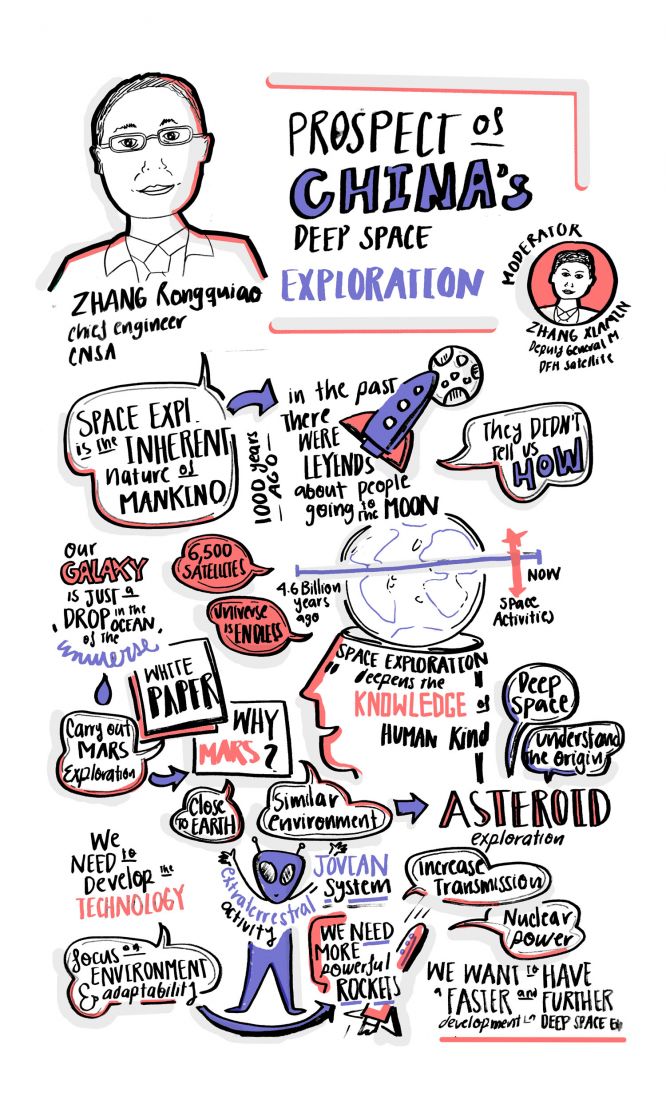 PROSPECT of
CHINA's
DEEP SPACE
EXPLORATION
ZHANG Rongquiao
chief engineer
CNSA
MODERATOR
ZHANG XIAMIN
Deputy General M
DFH Satellite
SPACE EXPL.
is the INHERENT
nature of
MANKIND
1000 years
AGO
in the past
There
WERE
LEYENDS
about people
going to the MOON
They DIDN'T
tell us
HOW
our
GALAXY
is JUST a
DROP in the
OCEAN
of the
universe
6,500
SATELLITES
Universe
is ENDLESS
4.6 Billion
years
ago
NOW
Space
Activities
SPACE EXPLORATION
deepens the
KNOWLEDGE of
HUMAN Kind
Deep
Space
understand
the origin
WHITE
PAPER
WHY
MARS?
Carry out
MARS
Exploration
Close
TO EARTH
Similar
environment
ASTEROID
exploration
We
NEED to
Develop the
TECHNOLOGY
extraterrestral
activity
JOVIAN
System
increase
Transmission
Nuclear
power
focus on
ENVIRONMENT
& adaptability
WE NEED
MORE
powerful
ROCKETS
WE WANT to HAVE
a FASTER and FURTHER
development in DEEP SPACE